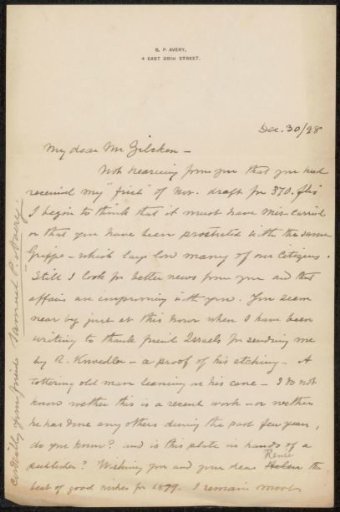 S. P. AVERY,
4 EAST 38TH STREET.
Dec. 30/98
My dear Mr Zilcken -
Not hearing from you that you had
received my "first" of Nov. draft for 370. fls
I begin to think that it must have mis-carried
or that you have been prostrated with the
Grippe - which lays low many of our Citizens.
Still I look for better news from you and that
affairs are improving with you. You seem
near by just at this hour when I have been
writing to thank friend Israels for sending me
by R. Knoedler - a proof of his etching - A
tottering old man leaning on his cane - I do not
know wether this is a recent work - or wether
he has done any others during the past few years,
do you know? and is this plate in hands of a
publisher? Wishing you and your dear Renée the
best of good wishes for 1899. I remain
cordially your friend Samuel P. Avery